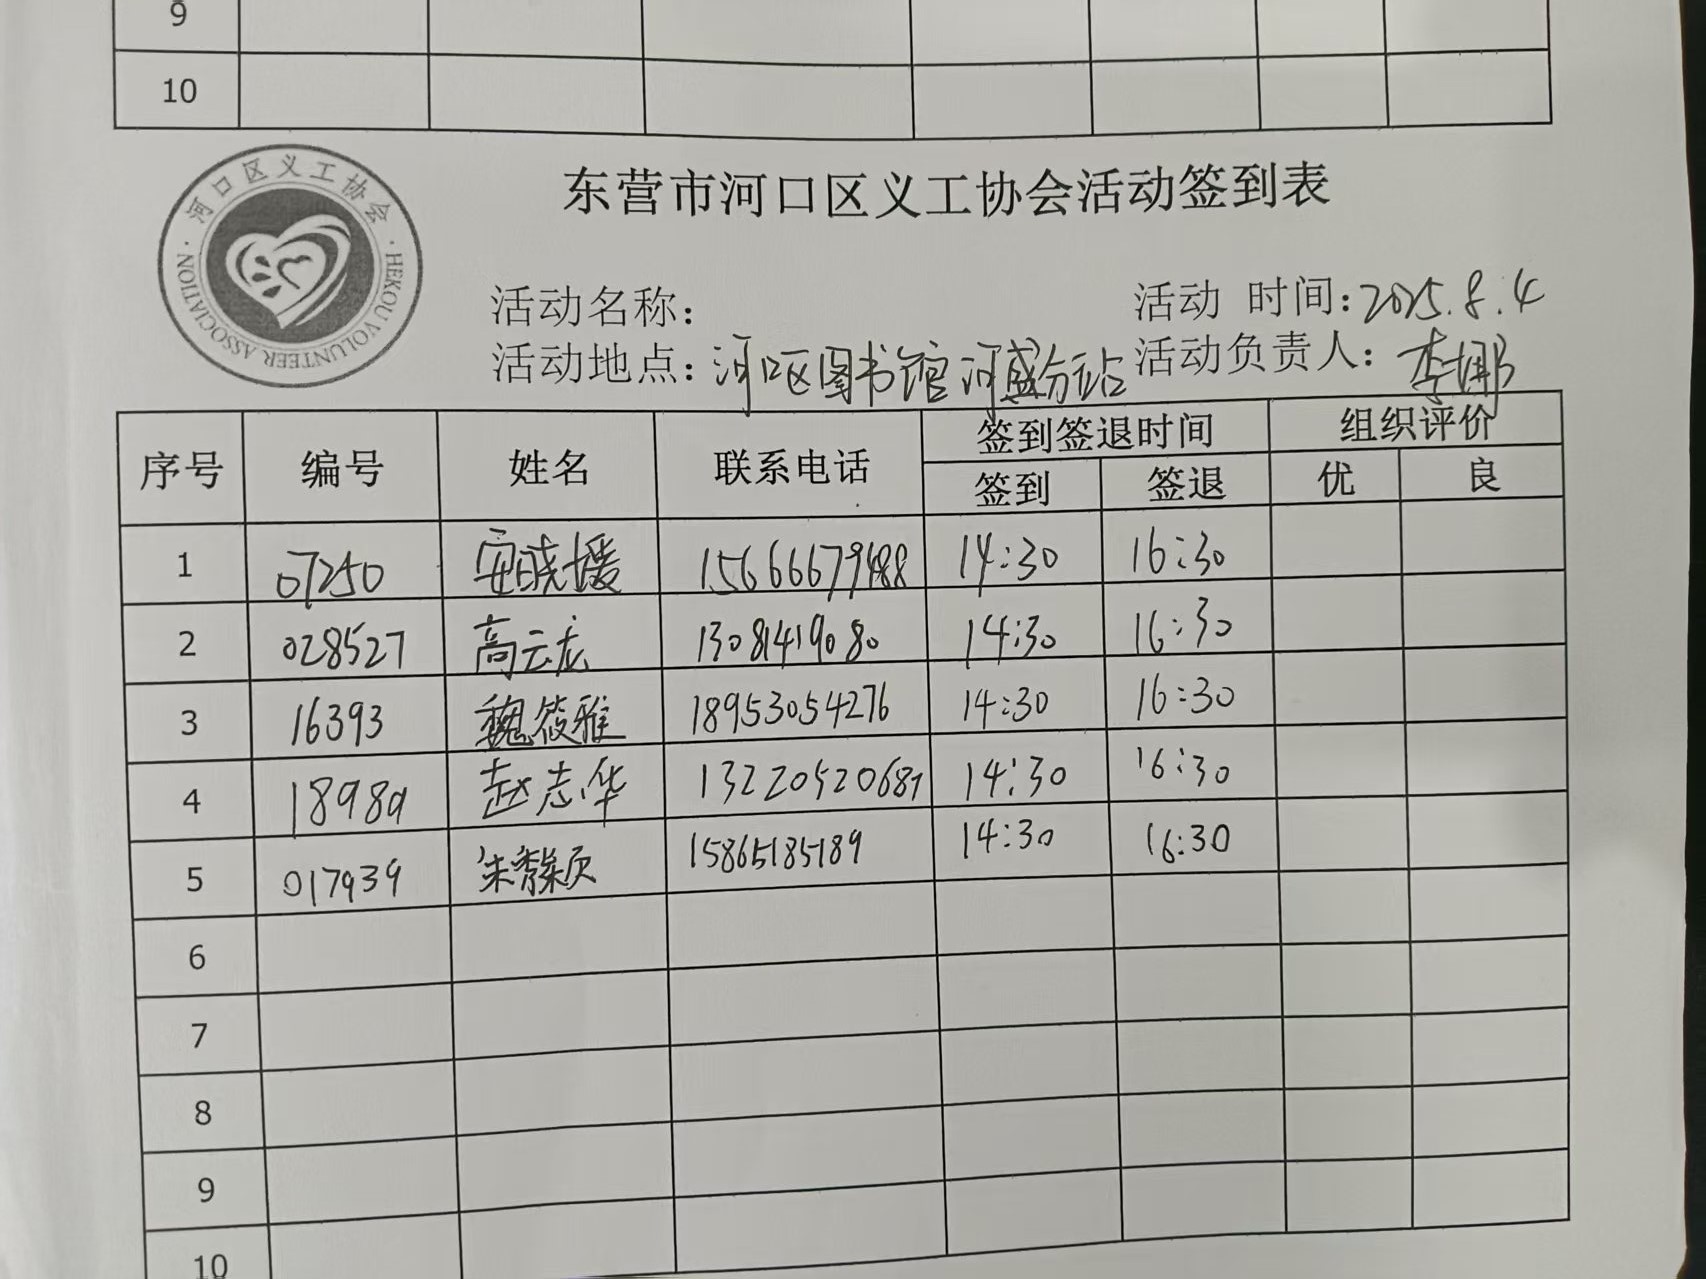 9
10
河口区义工协会
HEKOU VOLUNTEER ASSOCIATION
东营市河口区义工协会活动签到表
活动名称: 活动 时间:2025.8.4
活动地点:河口区图书馆河盛分站 活动负责人:李娜
序号 编号 姓名 联系电话 签到签退时间 组织评价
签到 签退 优 良
1 07250 安晓媛 15666679488 14:30 16:30
2 028527 高云龙 13081419080 14:30 16:30
3 16393 魏筱雅 18953054276 14:30 16:30
4 18989 赵志华 13220520687 14:30 16:30
5 017939 朱 15865185189 14:30 16:30
6
7
8
9
10